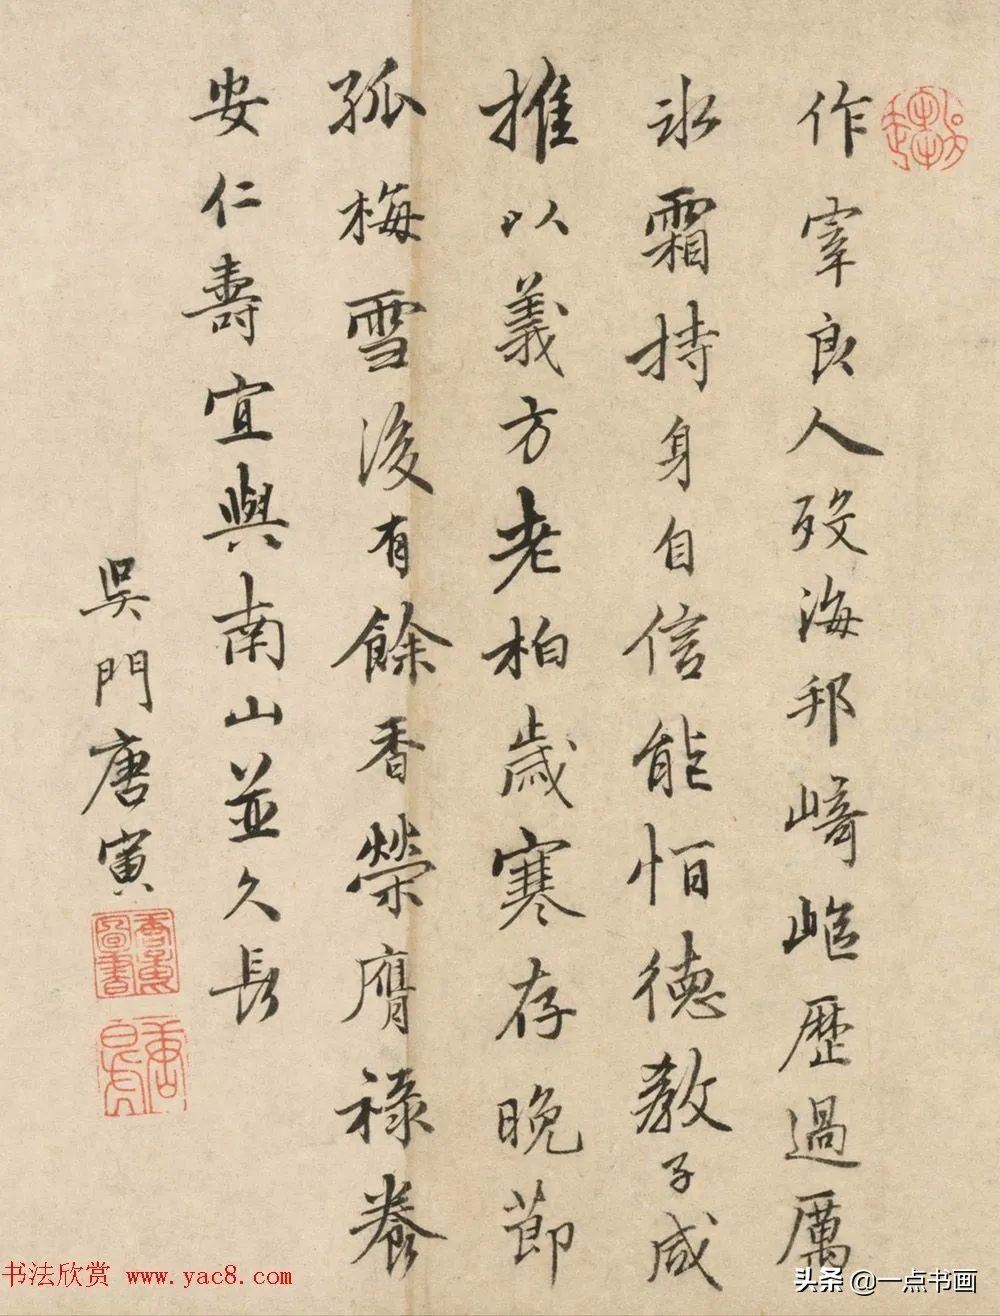 作宰良人歿海邦崎嶇歷過厲
冰霜持身自信能恒德教子咸
推以義方老柏歲寒存晚節
孤梅雪後有餘香榮膺祿養
安仁壽宜與南山並久長
吳門唐寅
唐寅圖書
书法欣赏 www.yac8.com
头条 @一点书画